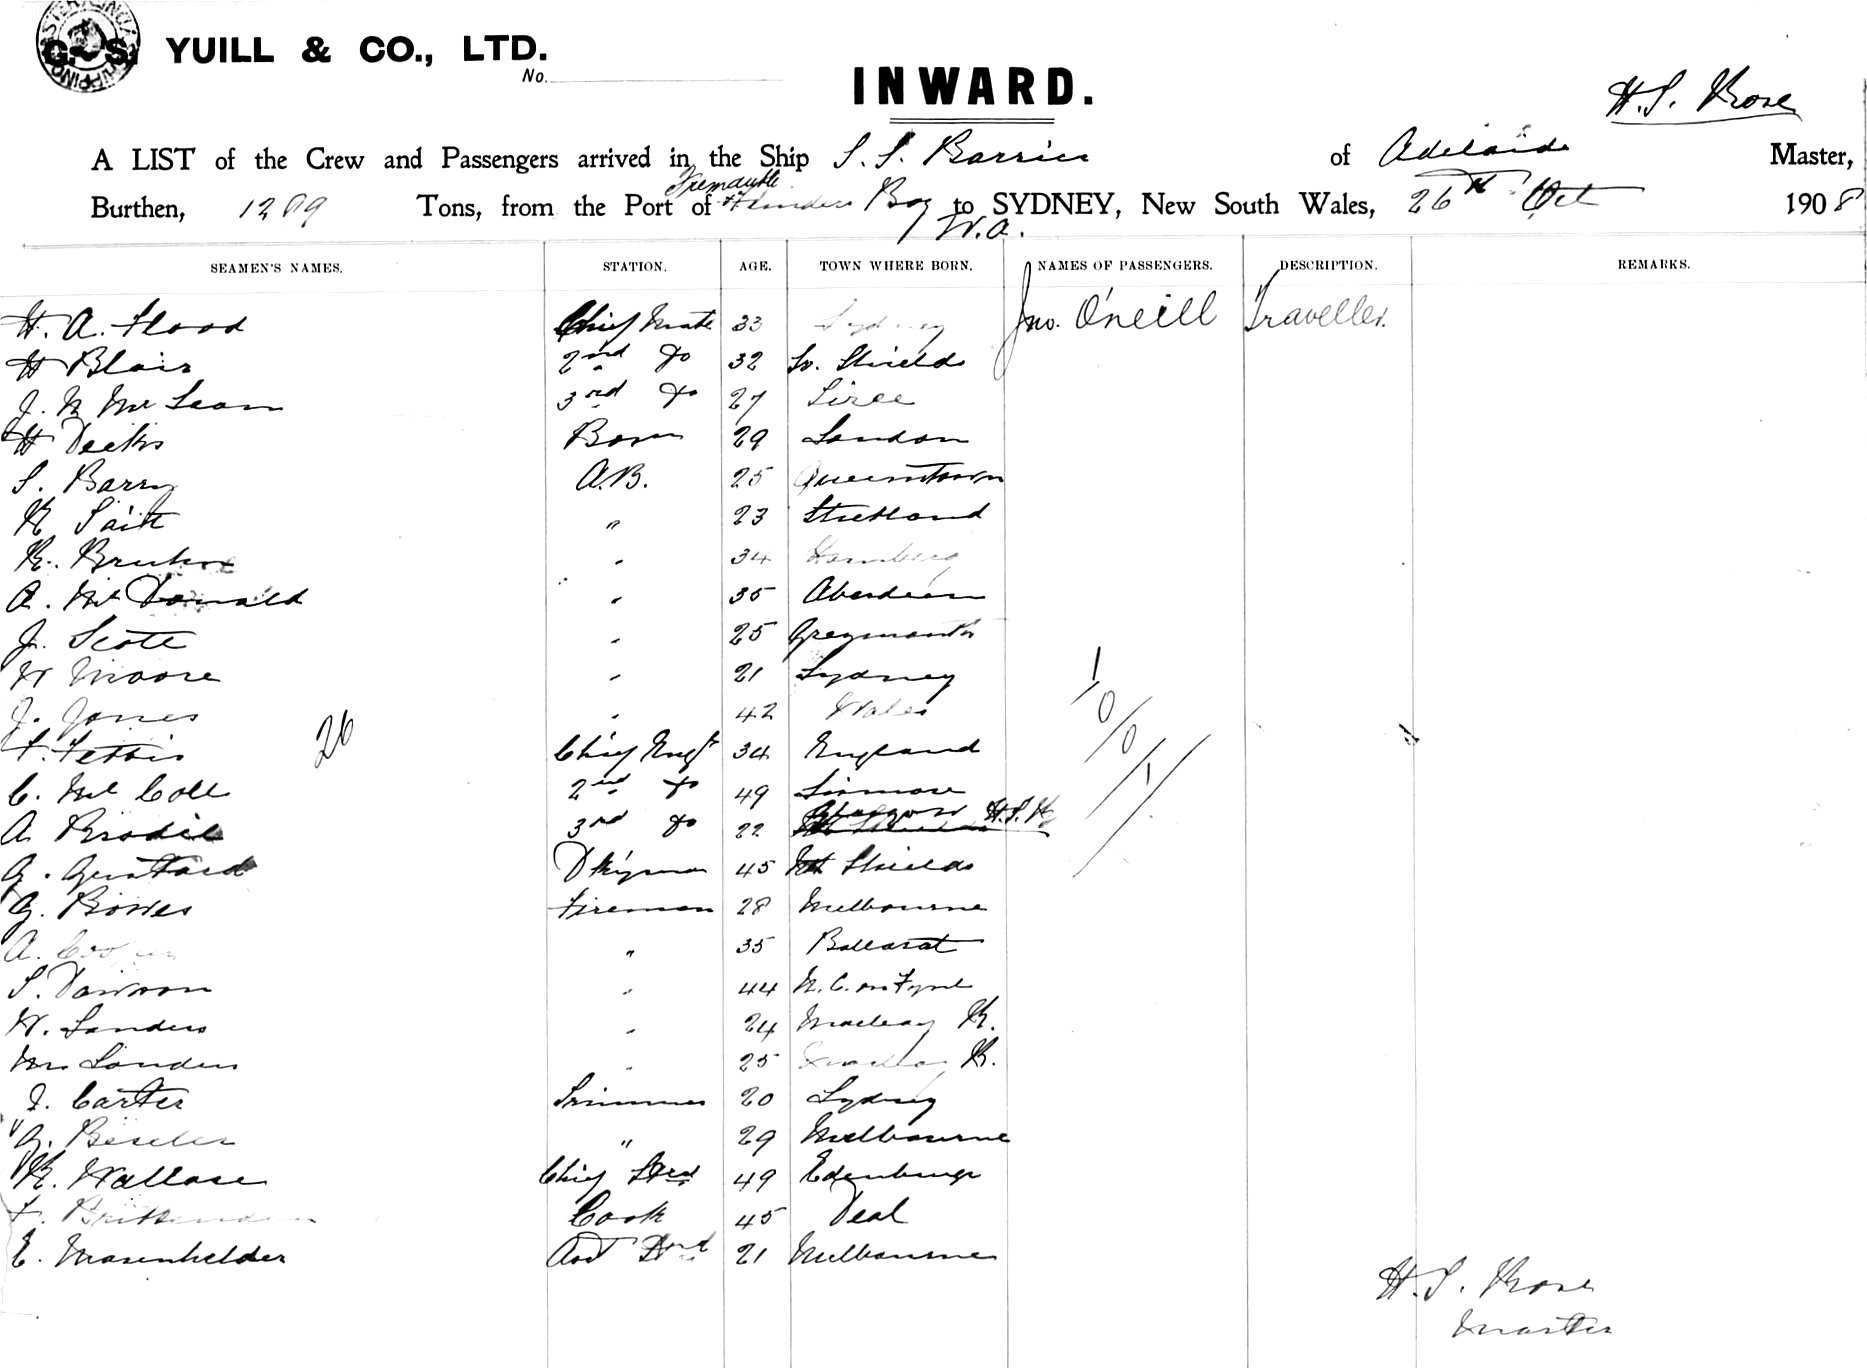 G. S. YUILL & CO., LTD.
No.
INWARD.
H. S. Rose
A LIST of the Crew and Passengers arrived in the Ship S. S. Barrier of Adelaide Master,
Fremantle
Burthen, 1289 Tons, from the Port of Flinders Bay to SYDNEY, New South Wales, 26th Oct 1908
W.A.
SEAMEN'S NAMES. STATION. AGE. TOWN WHERE BORN. NAMES OF PASSENGERS. DESCRIPTION. REMARKS.
H. A. Flood Chief Mate 33 Sydney Jno. O'Neill Traveller.
H Blair 2nd Do 32 So. Shields
J. N McLean 3rd Do 27 Tiree
H Deeks Bosn 29 London
S. Barry A.B. 25 Queenstown
R Tait " 23 Shetland
R. Bruhn " 34 Hamberg
A. McDonald " 35 Aberdeen
J. Scott " 25 Greymouth
W Moore " 21 Sydney
J. Jones " 42 Wales
F. Fettis Chief Engr 34 England
26
C. McColl 2nd Do 49 Lismore
A Brodie 3rd Do 22 Glasgow H.S.R
G. Dkyman 45 Nth Shields
G. Bowes Fireman 28 Melbourne
A. Cooper " 35 Ballarat
S. Dawson " 44 N. C. on Tyne
W. Sanders " 24 Macleay R.
" 25 Macleay R.
J. Carter Trimmer 20 Sydney
G. Beseler " 29 Melbourne
R. Wallace Chief Strd 49 Edenburgh
F. Brittenden Cook 45 Deal
E. Masenhelder Asst Strd 21 Melbourne
1/0/0/1/
H. S. Rose
Master